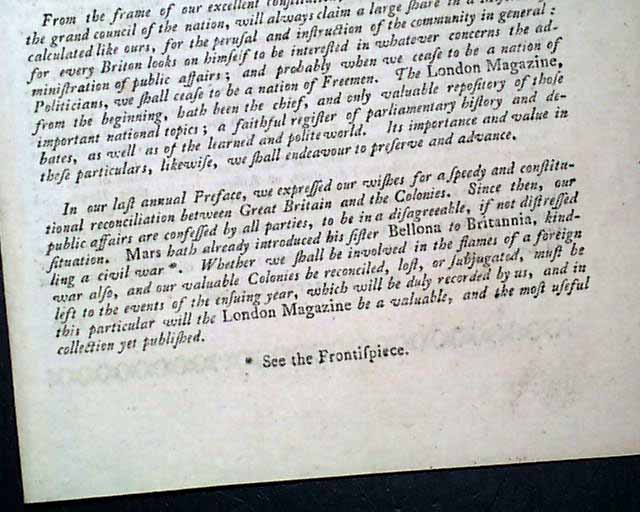 From the frame of our excellent constitution,
the grand council of the nation, will always claim a large ſhare in a
calculated like ours, for the peruſal and inſtruction of the community in general:
for every Briton looks on himſelf to be intereſted in whatever concerns the ad-
miniſtration of public affairs; and probably when we ceaſe to be a nation of
Politicians, we ſhall ceaſe to be a nation of Freemen. The London Magazine,
from the beginning, hath been the chief, and only valuable repoſitory of thoſe
important national topics; a faithful regiſter of parliamentary hiſtory and de-
bates, as well as of the learned and polite world. Its importance and value in
thoſe particulars, likewiſe, we ſhall endeavour to preſerve and advance.
In our laſt annual Preface, we expreſſed our wiſhes for a ſpeedy and conſtitu-
tional reconciliation between Great Britain and the Colonies. Since then, our
public affairs are confeſſed by all parties, to be in a diſagreeable, if not diſtreſſed
ſituation. Mars hath already introduced his ſiſter Bellona to Britannia, kind-
ling a civil war*. Whether we ſhall be involved in the flames of a foreign
war alſo, and our valuable Colonies be reconciled, loſt, or ſubjugated, muſt be
left to the events of the enſuing year, which will be duly recorded by us, and in
this particular will the London Magazine be a valuable, and the moſt uſeful
collection yet publiſhed.
* See the Frontiſpiece.